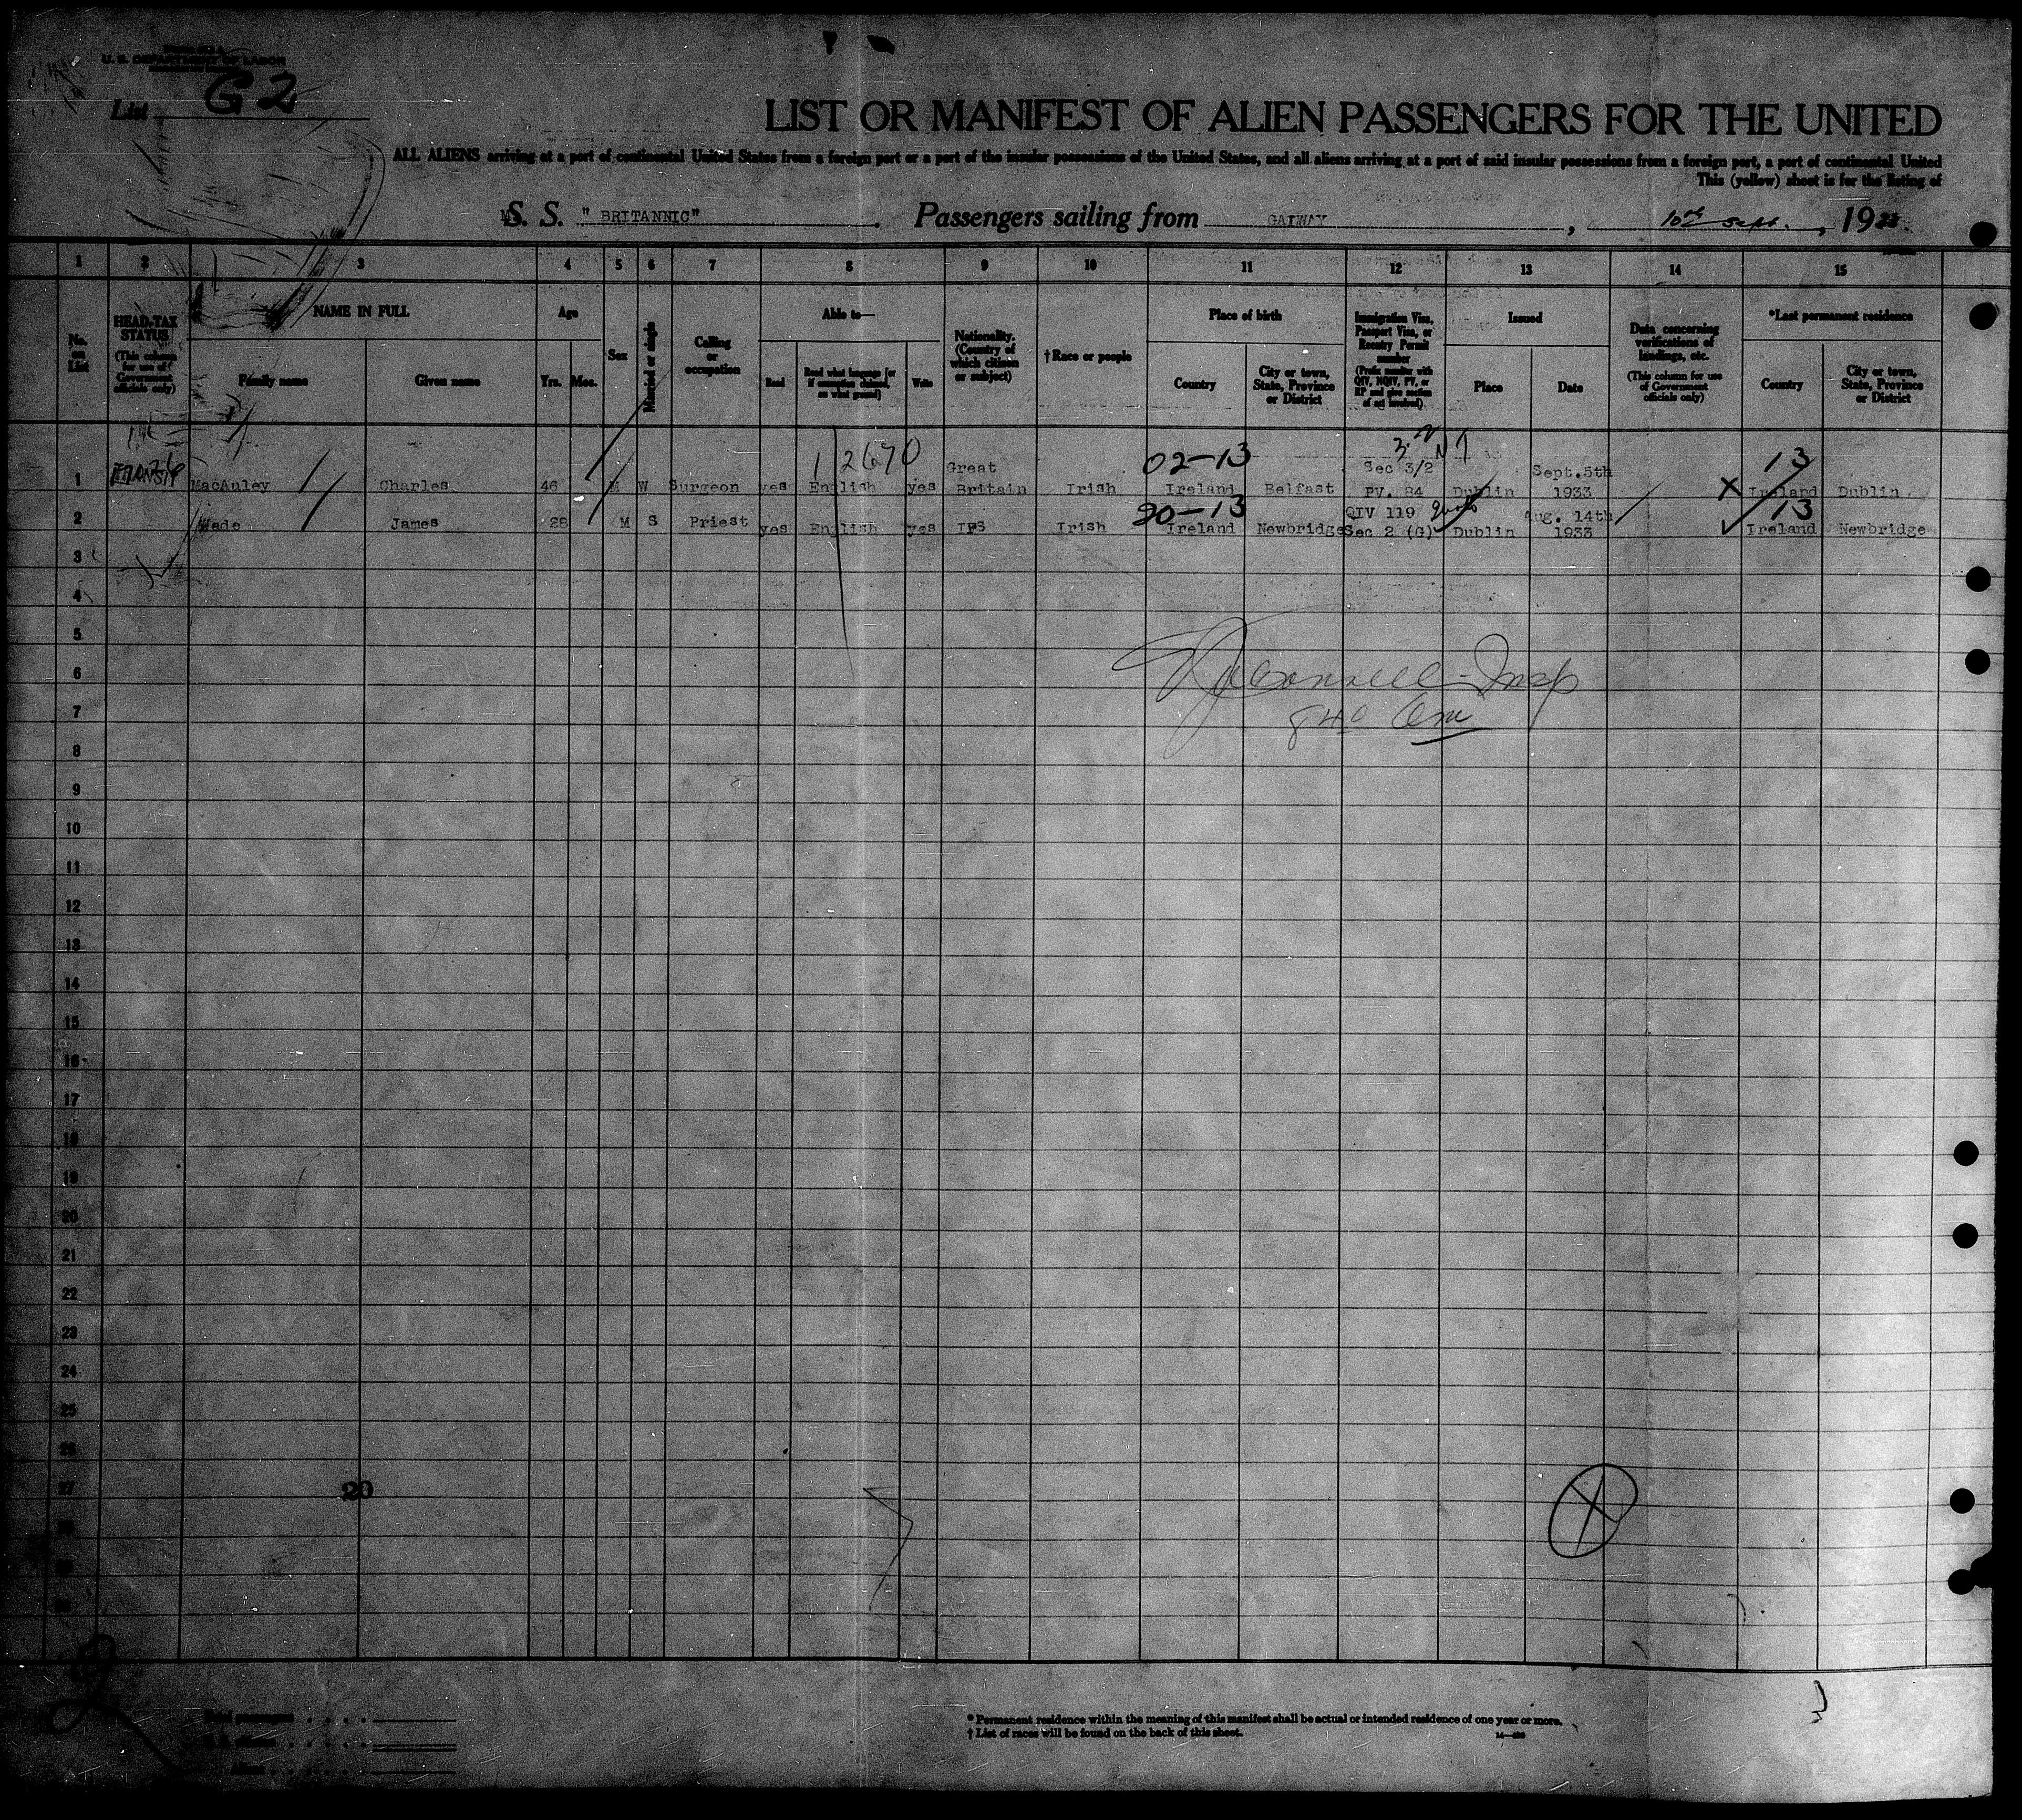 U. S. DEPARTMENT OF LABOR
List G2
LIST OR MANIFEST OF ALIEN PASSENGERS FOR THE UNITED
ALL ALIENS arriving at a port of continental United States from a foreign port or a port of the insular possessions of the United States, and all aliens arriving at a port of said insular possessions from a foreign port, a port of continental United
This (yellow) sheet is for the listing of
S. S. "BRITANNIC" Passengers sailing from GALWAY, 10th Sept., 19
1 2 3 4 5 6 7 8 9 10 11 12 13 14 15
No. on List
HEAD-TAX STATUS (This column for use of Government officials only)
NAME IN FULL
Family name Given name
Age
Yrs. Mos.
Sex
Married or single
Calling or occupation
Able to—
Read Read what language [or if exemption claimed, on what ground] Write
Nationality. (Country of which citizen or subject)
†Race or people
Place of birth
Country City or town, State, Province or District
Immigration Visa, Passport Visa, or Reentry Permit number (Prefix number with QIV, NQIV, PV, or RP and give section of act involved)
Issued
Place Date
Data concerning verifications of landings, etc. (This column for use of Government officials only)
*Last permanent residence
Country City or town, State, Province or District
12670 02-13 3.2 NT 13
1 TRANSIT MacAuley Charles 46 M W Surgeon yes English yes Great Britain Irish Ireland Belfast Sec 3/2 PV. 84 Dublin Sept.5th 1933 X Ireland Dublin
20-13 13
2 Wade James 28 M S Priest yes English yes IFS Irish Ireland Newbridge QIV 119 Sec 2 (G) Dublin Aug. 14th 1933 Ireland Newbridge
3
4
5
6
7
840 am
8
9
10
11
12
13
14
15
16
17
18
19
20
21
22
23
24
25
26
27
20
28
29
30
Total passengers
U. S. citizens
Aliens
* Permanent residence within the meaning of this manifest shall be actual or intended residence of one year or more.
† List of races will be found on the back of this sheet.